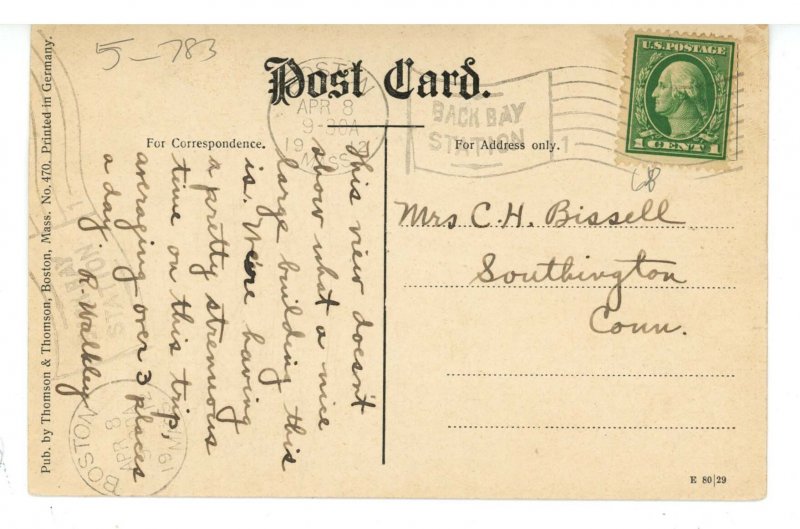 5-783
Post Card.
U.S. POSTAGE
1 CENT 1
BOSTON
APR 8
9-30A
1912
MASS.
BACK BAY
STATION
1
For Correspondence.
For Address only.
68
Mrs C. H. Bissell
Southington
Conn.
This view doesn't
show what a nice
large building this
is. We're having
a pretty strenuous
time on this trip,
averaging over 3 places
a day. R. Walkley
Pub. by Thomson & Thomson, Boston, Mass. No. 470. Printed in Germany.
BAY
STATION
1
BOSTON
APR 8
MASS
E 80|29